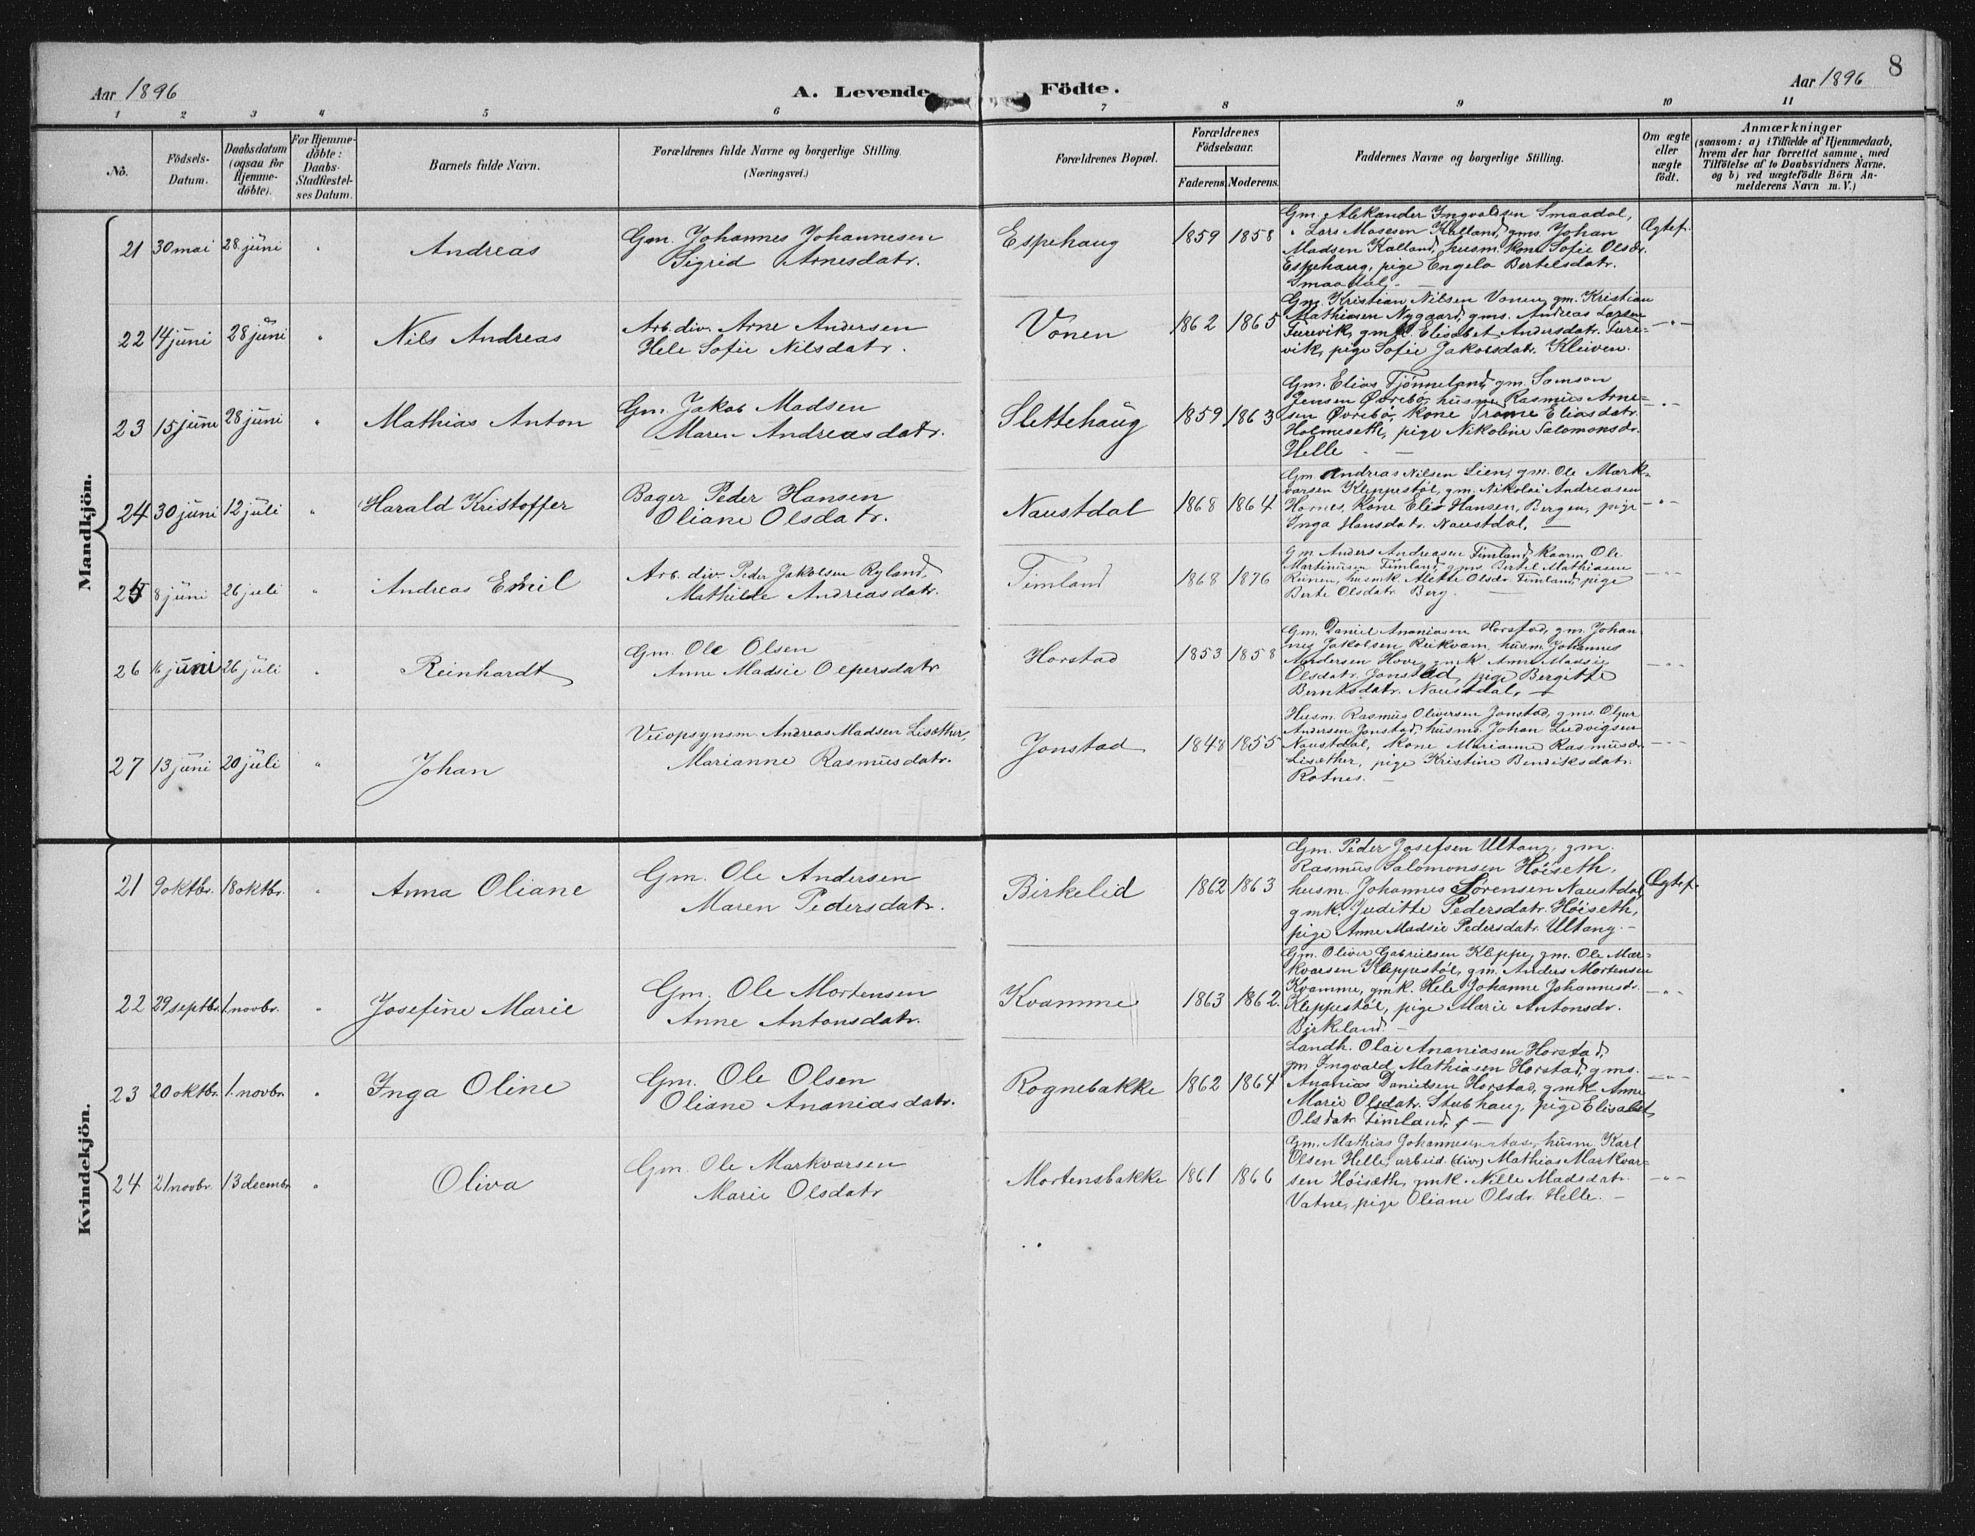 8
Aar 1896
A. Levende Födte.
Aar 1896
1 2 3 4 5 6 7 8 9 10 11
No.
Födsels-
Datum.
Daabsdatum
(ogsaa for
Hjemme-
döbte).
For Hjemme-
döbte:
Daabs-
Stadfæstel-
ses Datum.
Barnets fulde Navn.
Forældrenes fulde Navne og borgerlige Stilling.
(Næringsvei.)
Forældrenes Bopæl.
Forældrenes
Födselsaar.
Faderens. Moderens.
Faddernes Navne og borgerlige Stilling.
Om ægte
eller
uægte
födt.
Anmærkninger
(saasom: a) i Tilfælde af Hjemmedaab,
hvem der har forrettet samme, med
Tilföielse af to Daabsvidners Navne,
og b) ved uægtefödte Börn An-
melderens Navn m. V.)
Mandkjön.
21 30 mai 28 juni " Andreas
Gm. Johannes Johannesen
Sigrid Arnesdatr.
Espehaug 1859 1858
Gm. Aleksander Ingvaldsen Smaadal,
" Lars Mosesen Kalland, gms. Johan
Madsen Kalland, husm. kone Sofie Olsdr.
Espehaug, pige Engelo Bertelsdatr.
Smaadal. —
Ægtef.
22 14 juni 28 juni " Nils Andreas
Arb. div. Arne Andersen
Hele Sofie Nilsdatr.
Vonen 1862 1865
Gm. Kristian Nilsen Vonen, gm. Kristian
Mathiasen Nygaard, gms. Andreas Larsen
Furevik, gmk. Elisabet Andersdatr. Fure-
vik, pige Sofie Jakobsdatr. Kleiven.
— " —
23 15 juni 28 juni " Mathias Anton
Gm. Jakob Madsen
Maren Andreasdatr.
Slettehaug 1859 1863
Gm. Elias Tjønneland, gm. Samson
Jensen Øvrebø, husm. Rasmus Arne-
sen Øvrebø, kone Trone Eliasdatr.
Holmeseth, pige Nikoline Salomonsdr.
Helle. —
— " —
24 30 juni 12 juli " Harald Kristoffer
Bager Peder Hansen
Oliane Olsdatr.
Naustdal 1868 1864
Gm. Andreas Nilsen Lien, gm. Ole Mark-
varsen Kleppestøl, gm. Nikolai Andreasen
Hornes, kone Elis Hansen, Bergen, pige
Inga Hansdatr. Naustdal. —
— " —
25 8 juni 26 juli " Andreas Emil
Arb. div. Peder Jakobsen Ryland,
Mathilde Andreasdatr.
Timland 1868 1876
Gm Anders Andreasen Timland, kaarm. Ole
Martinusen Timland, gms. Bertel Mathiasen
Reinen, husmk. Alette Olsdr. Timland, pige
Berte Olsdatr. Berg. —
— " —
26 16 juni 26 juli " Reinhardt
Gm. Ole Olsen
Anne Madsie Olpersdatr.
Horstad 1853 1858
Gm. Daniel Ananiasen Horstad, gm. Johan-
nes Jakobsen Reikvam, husm. Johannes
Andersen Hove, gmk. Anne Madsie
Olsdatr. Jonstad, pige Bergitte
Berntsdatr. Naustdal. —
— " —
27 13 juni 20 juli " Johan
Veiopsynsm. Andreas Madsen Lisæther,
Marianne Rasmusdatr.
Jonstad 1848 1855
Husm. Rasmus Oliversen Jonstad, gms. Olper
Andersen Jonstad, husms. Johan Ludvigsen
Naustdal, kone Marianne Rasmusdr.
Lisæther, pige Kristine Bendiksdatr.
Rotnes. —
— " —
Kvindekjön.
21 9 oktbr. 18 oktbr. " Anna Oliane
Gm. Ole Andersen
Maren Pedersdatr.
Birkelid 1862 1863
Gm. Peder Josefsen Ultang, gm.
Rasmus Salomonsen Høiseth,
husm. Johannes Sørensen Naustdal,
gmk. Juditte Pedersdatr. Høiseth,
pige Anne Madsie Pedersdatr. Ultang. —
Ægtef.
22 29 septbr. 1. novbr. " Josefine Marie
Gm. Ole Mortensen
Anne Antonsdatr.
Kvamme 1863 1862.
Gm. Oliver Gabrielsen Kleppe, gm. Ole Mar-
kvarsen Kleppestøl, gm. Anders Mortensen
Kvamme, gmk. Hele Johanne Johannesdr.
Kleppestøl, pige Marie Antonsdr.
Birkeland. —
— " —
23 20 oktbr. 1. novbr. " Inga Oline
Gm. Ole Olsen
Oliane Ananiasdatr.
Rognebakke 1862 1864
Landh. Olai Ananiasen Horstad,
gm. Ingvald Mathiasen Horstad, gms.
Ananias Danielsen Horstad, gmk. Anne
Marie Olsdatr. Stubhaug, pige Elisabet
Olsdatr. Timland. —
— " —
24 21 novbr. 13 decembr " Oliva
Gm. Ole Markvarsen
Marie Olsdatr
Mortensbakke 1861 1866
Gm. Mathias Johannesen Aas, husm. Karl
Olsen Helle, arbeid. (div) Mathias Markvar-
sen Høisæth, gmk. Nille Madsdatr.
Vatne, pige Oliane Olsdr. Helle. —
— " —